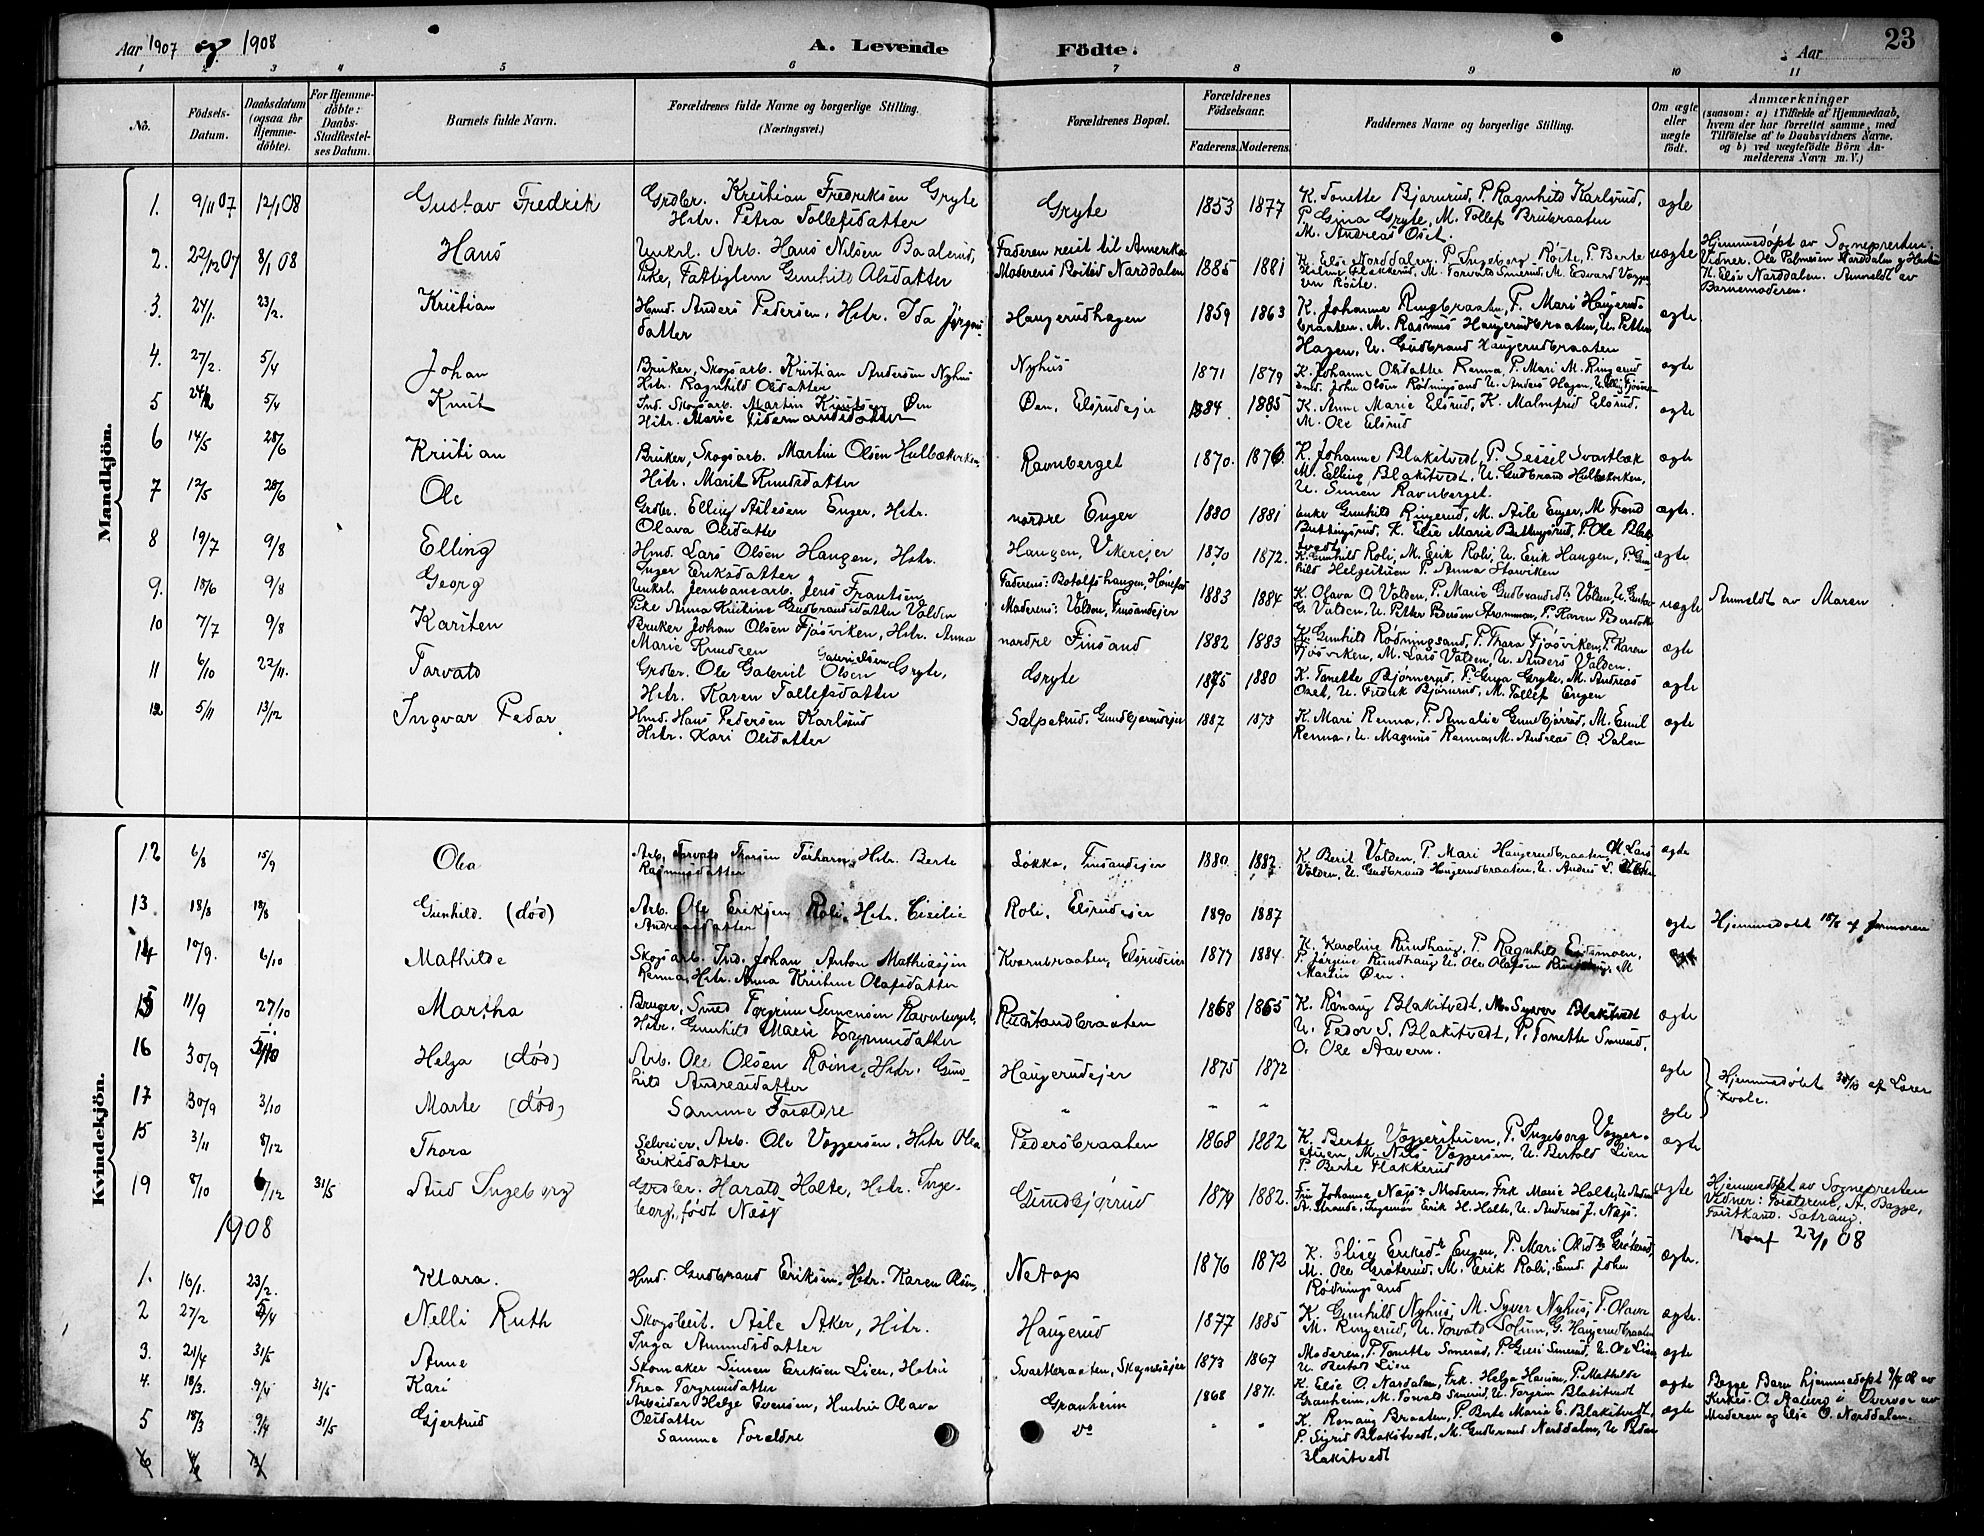 Aar 1907 og 1908
A. Levende Födte.
Aar
23
1 2 3 4 5 6 7 8 9 10 11
No.
Födsels-Datum.
Daabsdatum (ogsaa for Hjemmedöbte).
For Hjemmedöbte: Daabs-Stadfæstelses Datum.
Barnets fulde Navn.
Forældrenes fulde Navne og borgerlige Stilling. (Næringsvei.)
Forældrenes Bopæl.
Forældrenes Födselsaar.
Faderens. Moderens.
Faddernes Navne og borgerlige Stilling.
Om ægte eller uægte födt.
Anmærkninger (saasom: a) i Tilfælde af Hjemmedaab, hvem der har forrettet samme, med Tilföielse af to Daabsvidners Navne, og b) ved uægtefödte Börn Anmelderens Navn m. V.)
Mandkjön.
1. 9/11 07 12/1 08 Gustav Fredrik Grdbr. Kristian Fredriksen Gryte Hstr. Petra Tollefsdatter Gryte 1853 1877 K. Tonette Bjørnerud, P. Ragnhild Karlsrud, P. Gina Gryte, M. Tollef Brubraaten M. Andreas Oset. ægte
2. 22/12 07 8/1 08 Hans Unkrl. Arb. Hans Nilsen Baalerud, Pike, Fattiglem Gunhild Olsdatter Faderen reist til Amerika Moderens Losted Narddalen 1885 1881 K. Else Norddalen, P. Ingeborg Röite, P. Berte Flakkerud, M. Torvald Smerud, M. Edvard uægte Hjemmedöpt av Sognepresten. Vidner: Ole Palmesen Narddalen K. Else Narddalen. Anmeldt av Barnemoderen.
3. 24/1. 23/2. Kristian Hmd. Anders Pedersen, Hstr. Ida Jørgensdatter Haugerudhagen 1859 1863 K. Johanne Ringbraaten, P. Mari Haugerudbraaten. M. Rasmus Haugerudbraaten, U. Petter Hagen, U. Gudbrand Haugerudbraaten ægte
4. 27/2. 5/4 Johan Bruker, Skogsarb. Kristian Andersen Nyhus Hstr. Ragnhild Olsdatter Nyhus 1871 1879 K. Johanne Olsdatter Renna, P. Mari M. Ringerud Smd. John Olsen Rødningsand U. Anders Hagen, ægte
5 5/4 Knut Ind. Skogsarb. Martin Knutsen Øen Hstr. Marie Tidemandsdatter Øen, Elsrudejer 1884 1885 K. Anne Marie Elsrud, K. Malmfrid Elsrud, M. Ole Elsrud ægte
6 14/5 28/6 Kristian Bruker, Skogsarb. Martin Olsen Hulbækviken Hstr. Marit Knudsdatter Ravnberget 1870. 1876. K. Johanne Blakstvedt, P. Sessel Svartbæk M. Elling Blakstvedt, U. Gudbrand Hulbækviken, U. Simen Ravnberget. ægte
7 12/5 28/6 Ole Grdbr. Elling Aslesen Enger, Hstr. Olava Olsdatter nordre Enger 1880 1881 Enke Gunhild Ringerud, M. Asle Enger, M. Trond Buttingsrud, K. Else Marie Buttingsrud, P. Ole Blakstvedt ægte.
8 19/7 9/8 Elling Hmd. Lars Olsen Haugen, Hstr. Inger Eriksdatter Haugen, Vekerejer 1870 1872. K. Gunhild Roli, M. Erik Roli, U. Erik Haugen, P. Gunhild Helgestuen P. Anna Storviken ægte
9. 18/6 9/8 Georg Unkrl. Jernbanearb. Jens Frantsen Pike Anna Kristine Gudbrandsdatter Valden Faderens: Botolfshaugen, Hönefos Moderens: Valden, Finsandejer 1883 1884 K. Olava O. Valden, P. Marie Gudbrandsdt. Valden, U. Gustav G. Valden, U. Petter Pedersen Strømmen, P. Karen Pedersdt. uægte Anmeldt av Moren
10 7/7 9/8 Karsten Bruker Johan Olsen Fjøsviken, Hstr. Anna Marie Knudsen nordre Finsand 1882 1883 K. Gunhild Rødningsand, P. Thora Fjøsviken, P. Karen Fjøsviken, M. Lars Valden, U. Anders Valden. ægte
11 6/10 22/11. Torvald Grdbr. Ole Gabriel Olsen Gabrielsen Gryte, Hstr. Karen Tollefsdatter Gryte 1875 1880 K. Tonette Bjørnerud, P. Gina Gryte, M. Andreas Oset, U. Fredrik Bjørnrud, M. Tollef Engen ægte
12 5/11 13/12 Ingvar Peder Hmd. Hans Pedersen Karlsrud Hstr. Kari Olsdatter Salpetrud, Gundbjørrudejer 1887 1873 K. Mari Renna, P. Amalie Gundbjørrud, M. Emil Renna, U. Magnus Renna, M. Andreas O. Dalen ægte
Kvindekjön.
12 6/8 15/9 Olea Arb. Torvald Thorsen Torhaug, Hstr. Berte Rasmusdatter Løkka, Finsandejer 1880 1882. K. Berit Valden, P. Mari Haugerudbraaten, M. Lars Valden, U. Gudbrand Haugerudbraaten, U. Anders L. Valden ægte
13. 18/8 18/8 Gunhild. (død) Arb. Ole Eriksen Roli, Hstr. Cisilie Andreasdatter Roli, Elsrudejer 1890 1887 ægte Hjemmedøbt 18/8 af Jormoren
14 10/9. 6/10 Mathilde Skogsarb. Ind. Johan Anton Mathiasen Renna, Hstr. Anna Kristine Olafsdatter Kvernbraaten, Elsrudeier 1877 1884. K. Karoline Rundhaug, P. Ragnhild Eidsmoen, P. Jørgine Rundhaug U. Ole Olafsen M. Martin Øen. ægte
15 11/9 27/10 Martha Bruger, Smed Torgrim Simensen Ravnberget, Hstr. Gunhild Marie Torgrimsdatter Rustandbraaten 1868 1865 K. Rønaug Blakstvedt, M. Syver Blakstvedt U. Peder S. Blakstvedt, P. Tonette Smerud. O. Ole Aavern. ægte
16 30/9 3/10 Helga (død) Arb. Ole Olsen Roine, Hstr. Gunhild Andreasdatter Haugerudejer 1875 1872 ægte Hjemmedøbt 30/9 af Lærer Kvale.
17 30/9 3/10 Marte (død) Samme Foreldre " " " ægte
15 3/11 8/12 Thora Selveier, Arb. Ole Voggersen, Hstr Olea Eriksdatter Pedersbraaten 1868 1882 K. Berte Voggerstuen, P. Ingeborg Voggerstuen, M. Nils Voggersen, U. Bertold Lien P. Berte Flakkerud ægte
19 8/10 6/12 31/5 Aud Ingeborg Grdbr. Harald Holte, Hstr. Ingeborg, født Næsj Gundbjørrud 1879 1882. Fru Johanna Næsj, Moderen, Frk Marie Holte, A. Strande, Ingeniør Erik H. Holte, U. Andreas J. Næsj. ægte Hjemmedøpt av Sognepresten Vidner: Foreldrene, A. Bagge, Forstkand. Sætrang. Konf 22/1 08
1908
1. 16/1. 23/2. Klara. Hmd. Gudbrand Eriksen, Hstr. Karen Olsen, Netop 1876 1872 K. Elise Eriksdt. Engen, P. Mari Olsdt. Grøterud, M. Ole Grøterud, M. Erik Roli, Smd. John Rødningsand ægte.
2 27/2 5/4 Nelli Ruth Skogsbest. Asle Aker, Hstr. Inga Amundsdatter Haugerud 1877 1885 K. Gunhild Nyhus, M. Syver Nyhus, P. Olava M. Ringerud, U. Torvald Solum, G. Haugerudbraaten ægte.
3. 21/4 31/5 Anne Skomaker Simen Eriksen Lien, Hstru Thea Torgrimsdatter Svartbraaten, Skagnesejer 1873 1867 Moderen, P. Tonette Smerud, P. Guri Smerud, U. Ole Lien U. Bertold Lien ægte
4. 18/3. 9/4 31/5 Kari Arbeider Helge Evensen, Hustru Olava Olsdatter Granheim 1868 1871. K. Else O. Nordalen, Frk. Helga Hansen, P. Mathilde Granheim, M. Torvald Smerud, U. Torgrim Blakstvedt ægte Begge Børn hjemmedøpt 9/4 08 av Kirkes. O. Aaberg i Overvær av Moderen og Else O. Norddalen.
5 18/3 9/4 31/5 Gjertrud Samme Foreldre do " " K. Rønaug Braaten, P. Berte Marie E. Blakstvedt, P. Sigrid Blakstvedt, M. Gudbrand Norddalen, U. Peder Blakstvedt ægte
6